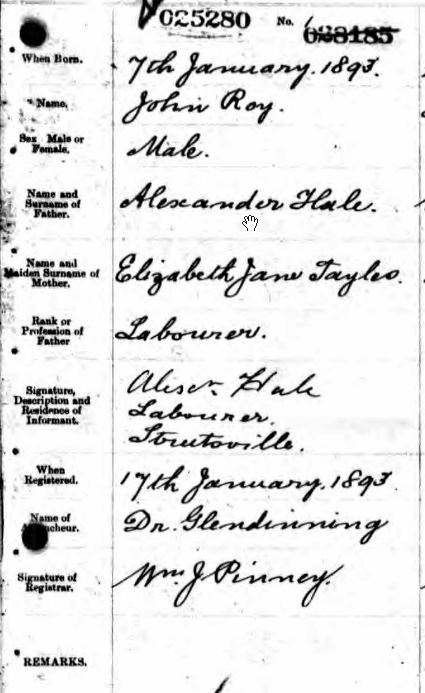 025280 No. 1
028185
When Born. 7th January. 1893.
Name. John Roy.
Sex Male or
Female. Male.
Name and
Surname of
Father. Alexander Hale.
Name and
Maiden Surname of
Mother. Elizabeth Jane Tayles.
Rank or
Profession of
Father Labourer.
Signature,
Description and
Residence of
Informant. Alexr. Hale
Labourer.
Streetsville.
When
Registered. 17th January. 1893.
Name of
Dr. Glendinning
Signature of
Registrar. Wm J Pinney.
REMARKS.